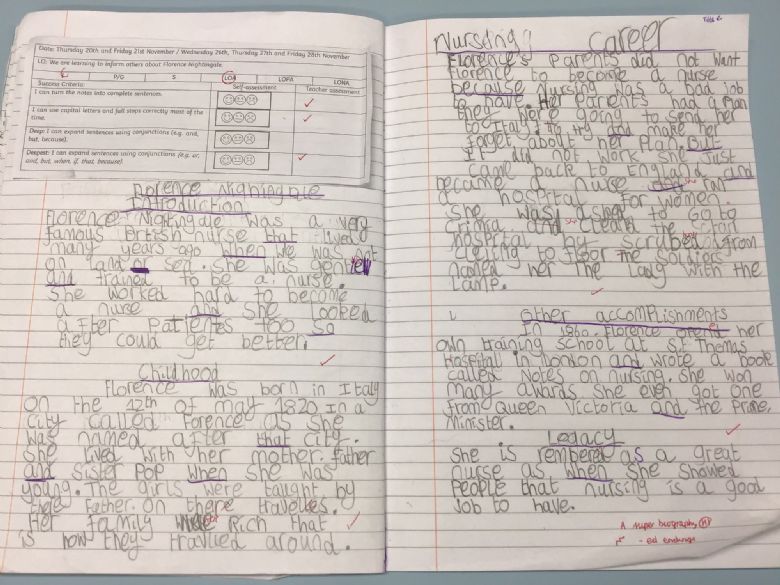 Date: Thursday 20th and Friday 21st November / Wednesday 26th, Thursday 27th and Friday 28th November
LO: We are learning to inform others about Florence Nightingale.
C P/G S LOA LOPA LONA
Success Criteria: Self-assessment Teacher assessment
I can turn the notes into complete sentences.
I can use capital letters and full stops correctly most of the
time.
Deep: I can expand sentences using conjunctions (e.g. and,
but, because).
Deepest: I can expand sentences using conjunctions (e.g. or,
and, but, when, if, that, because).
Florence Nightingale
Introduction
Florence Nightingale was a very
famous British nurse that lived
many years ago when we was not
on land or sea. she was
and trained to be a nurse.
She worked hard to become
a nurse and she looked
after patients too so
they could get better.
Childhood
Florence was born in Italy
on the 12th of may 1820 in a
city called Forence as she
was named after that city.
She lived with her mother, father
and sister Pop when she was
young. The girls were taught by
there Father. On there travelles.
Her family Rich that
is how they travlied around.
Nursing Career
Florence's parents did not want
Florence to become a nurse
because nursing was a bad job
to have. Her parents had a plan
they were going to send her
to Italy to try and make her
forget about her plan. But
it did not work she just
came back to England and
became a nurse and she ran
a hospital for women.
She was asked to go to
Crimia and she cleand the
hospital by scrubed from
celing to floor the soldiers
named her the lady with the
lamp.
Other accomplishments
In 1860 Florence opened her
own training school at St Thomas
Hospital in London and wrote a book
called Notes on nursing. She won
many awards she even got one
from Queen Victoria and the Prime
Minister.
Legacy
She is rembered as a great
nurse as when she showed
people that nursing is a good
job to have.
A super biography
- ed endings